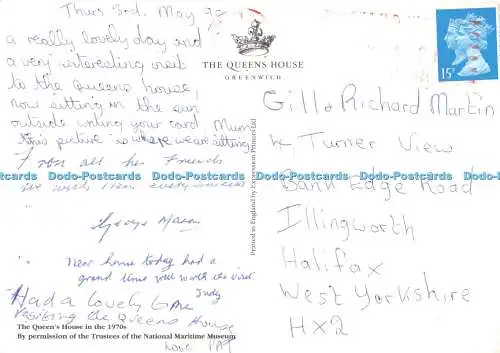 Thurs 3rd. May 90
a really lovely day and
a very interesting visit
to the Queens house,
now sitting in the sun
outside writing your card. Mum
this picture is where we are sitting
From all her friends
we wish them every success
George
Near home today had a
grand time well worth the visit.
Judy
Had a lovely time
visiting the Queens House
love Pat
The Queen's House in the 1970s
By permission of the Trustees of the National Maritime Museum
THE QUEENS HOUSE
GREENWICH
Printed in England by Expression Printers Ltd
15P
Gill & Richard Martin
4 Turner View
Bank Edge Road
Illingworth
Halifax
West Yorkshire
HX2
Dodo-Postcards Dodo-Postcards Dodo-Postcards Dodo-Postcards Dodo-Postcards